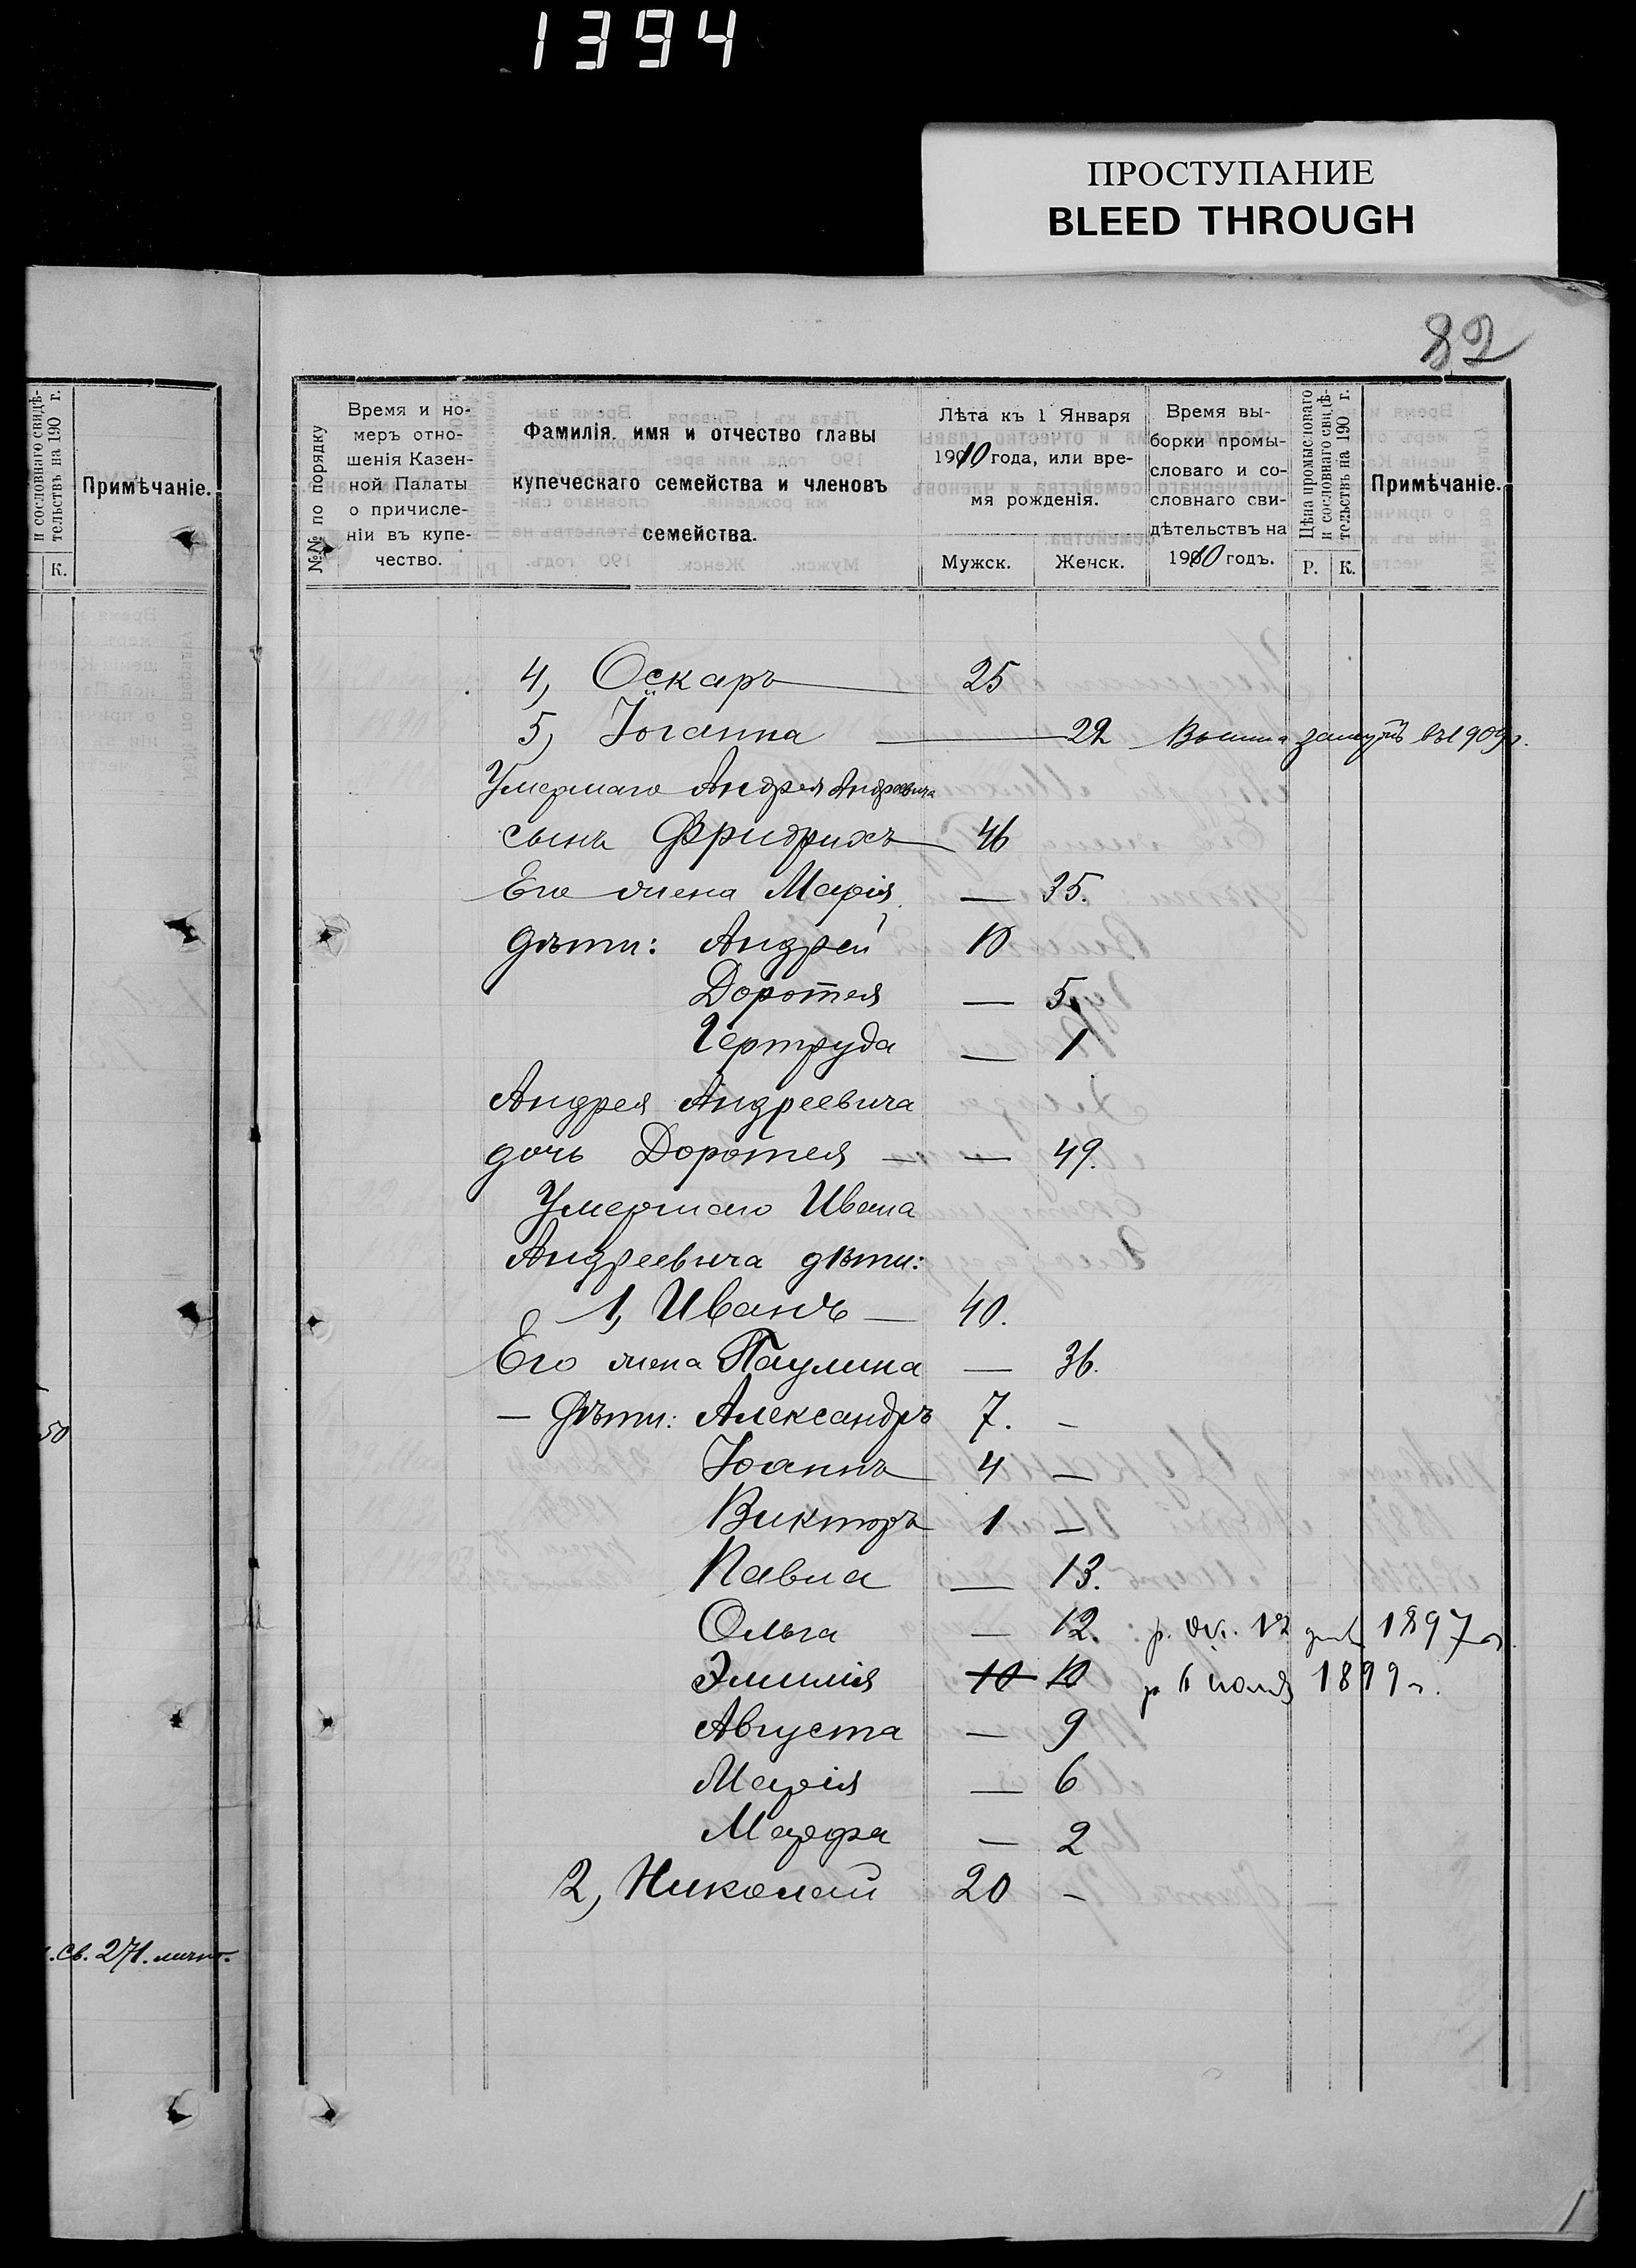 1394
ПРОСТУПАНИЕ
BLEED THROUGH
82
и сословнаго свидѣ-
тельствъ на 190 г.
К.
Примѣчаніе.
50
св. 271. личн.
№№ по порядку
Время и но-
меръ отно-
шенія Казен-
ной Палаты
о причисле-
ніи въ купе-
чество.
Фамилія, имя и отчество главы
купеческаго семейства и членовъ
семейства.
Лѣта къ 1 Января
1910 года, или вре-
мя рожденія.
Мужск.
Женск.
Время вы-
борки промы-
словаго и со-
словнаго сви-
дѣтельствъ на
1910 годъ.
Цѣна промысловаго
и сословнаго свидѣ-
тельствъ на 190 г.
Р.
К.
Примѣчаніе.
4, Оскаръ 25
5, Іоганна — 22 Вышла замужъ въ 1909 г.
Умершаго Андрея Андреевича
сынъ Фридрихъ 46
Его жена Марія — 35.
дѣти: Андрей 10
Доротея — 5.
Гертруда — 1
Андрея Андреевича
дочь Доротея — — 49.
Умершаго Ивана
Андреевича дѣти:
1, Иванъ — 40.
Его жена Паулина — 36.
— Дѣти: Александръ 7. —
Іоаннъ 4 —
Викторъ 1 —
Павла — 13.
Ольга — 12. р. 12 1897 г.
Эмилія 10 10 р 6 1899 г.
Августа — 9
Марія — 6
— 2
2, Николай 20 —